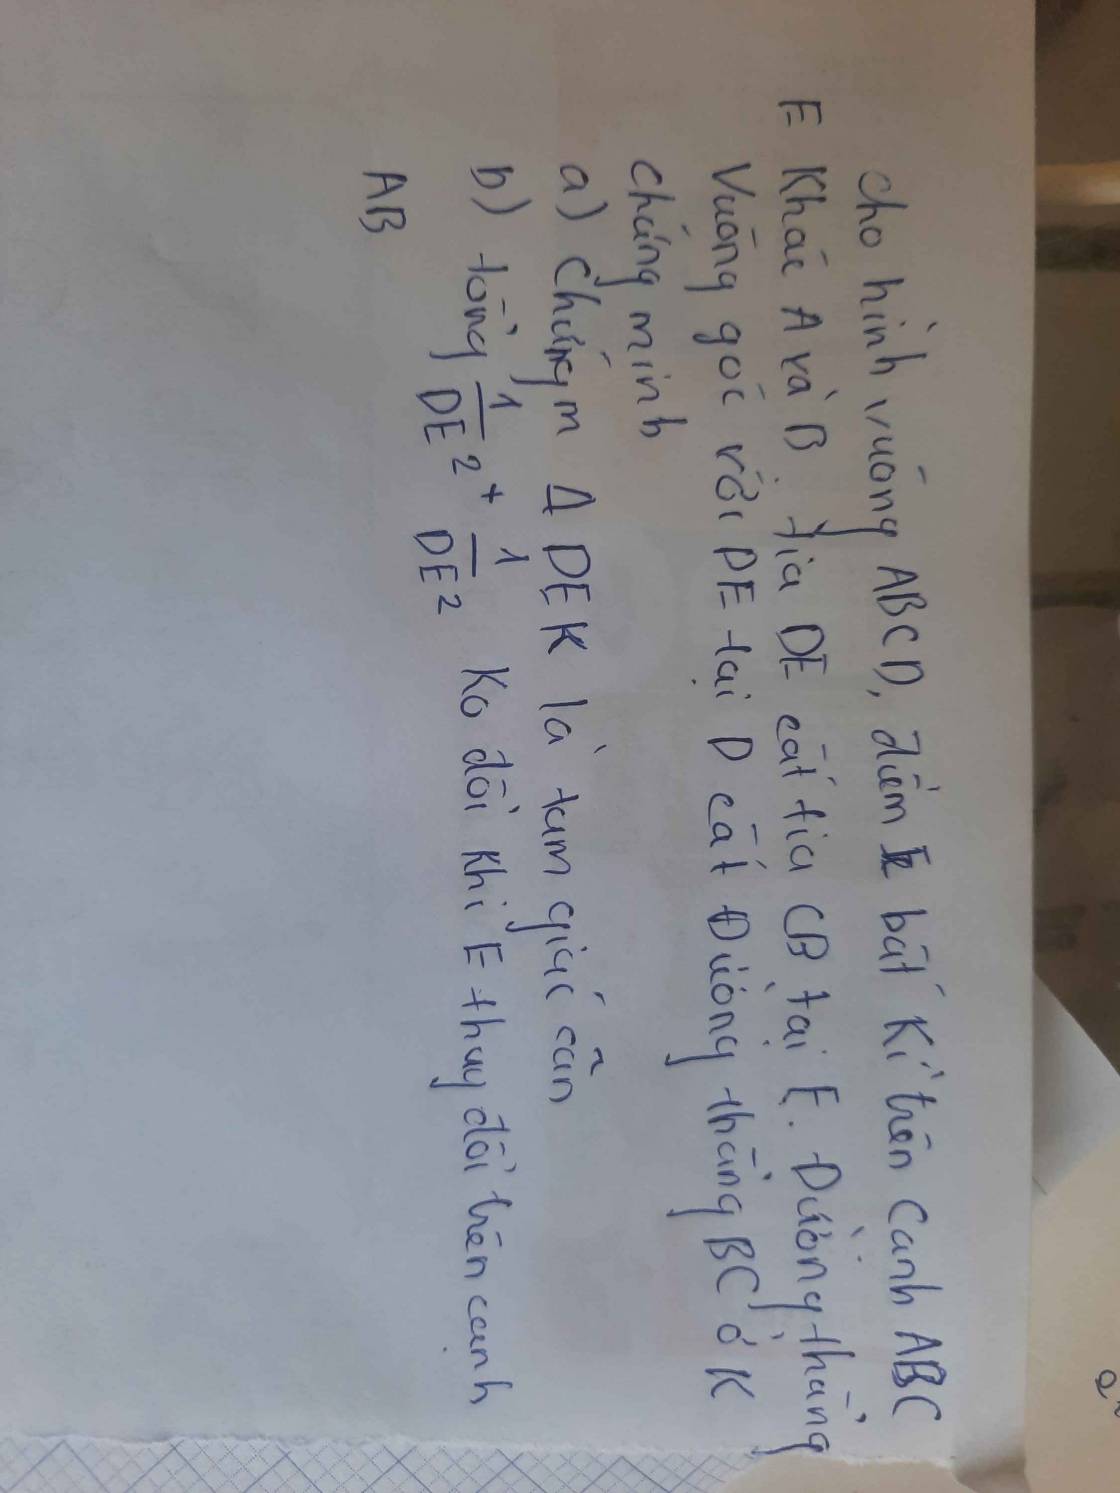 cho hình vuông ABCD, điểm E bất kì trên cạnh ABC
E Khác A và B. tia DE cắt tia CB tại E. Đường thẳng
Vuông góc với DE tại D cắt Đường thẳng BC ở K
chứng minh
a) Chứng m Δ DEK là tam giác cân
b) tổng 1/DE² + 1/DE² Ko đổi khi E thay đổi trên cạnh
AB